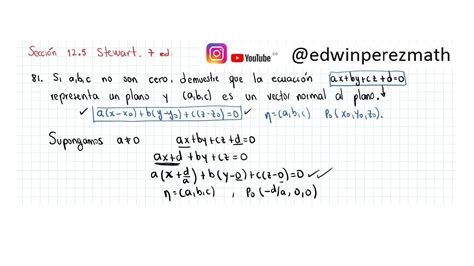 Sección 12.5 Stewart. 7 ed.
YouTube
@edwinperezmath
81. Si a,b,c no son cero, demuestre que la ecuación ax+by+cz+d=0
representa un plano y (a,b,c) es un vector normal al plano.
✓ a(x-x₀)+b(y-y₀)+c(z-z₀)=0 ✓ η=(a,b,c) P₀(x₀,y₀,z₀).
Supongamos a≠0 ax+by+cz+d=0
ax+d+by+cz=0
a(x+d/a)+b(y-0)+c(z-0)=0 ✓✓
η=(a,b,c) , P₀(-d/a,0,0)